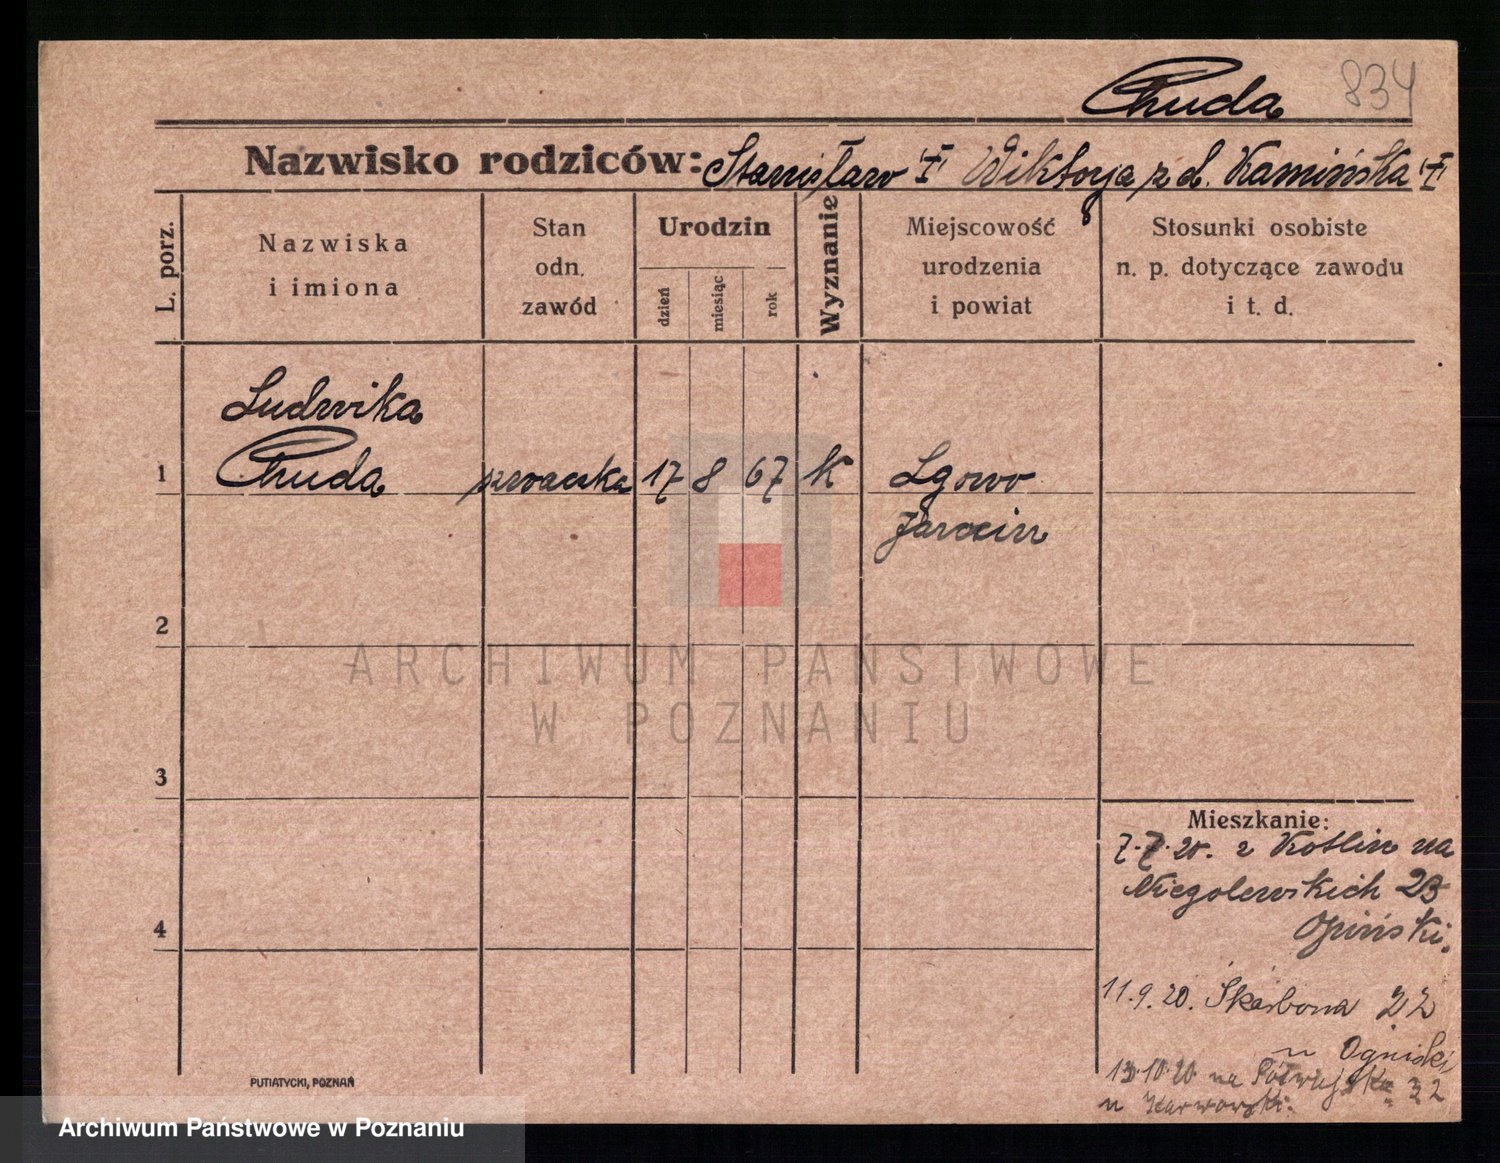 Chuda 834
Nazwisko rodziców: Stanisław † Wiktorya z d. Kamińska †
L. porz.
Nazwiska
i imiona
Stan
odn.
zawód
Urodzin
dzień
miesiąc
rok
Wyznanie
Miejscowość
urodzenia
i powiat
Stosunki osobiste
n. p. dotyczące zawodu
i t. d.
Ludwika
1 Chuda szwaczka 17 8 67 K Lgowo
Jarocin
2
ARCHIWUM PAŃSTWOWE
W POZNANIU
3
Mieszkanie:
7.7.20. z Kotlin na
Niegolewskich 23
Opiński.
4
11.9.20. Skarbona 22
u Ogniski
13.10.20 na 32
u
PUTIATYCKI, POZNAŃ
Archiwum Państwowe w Poznaniu